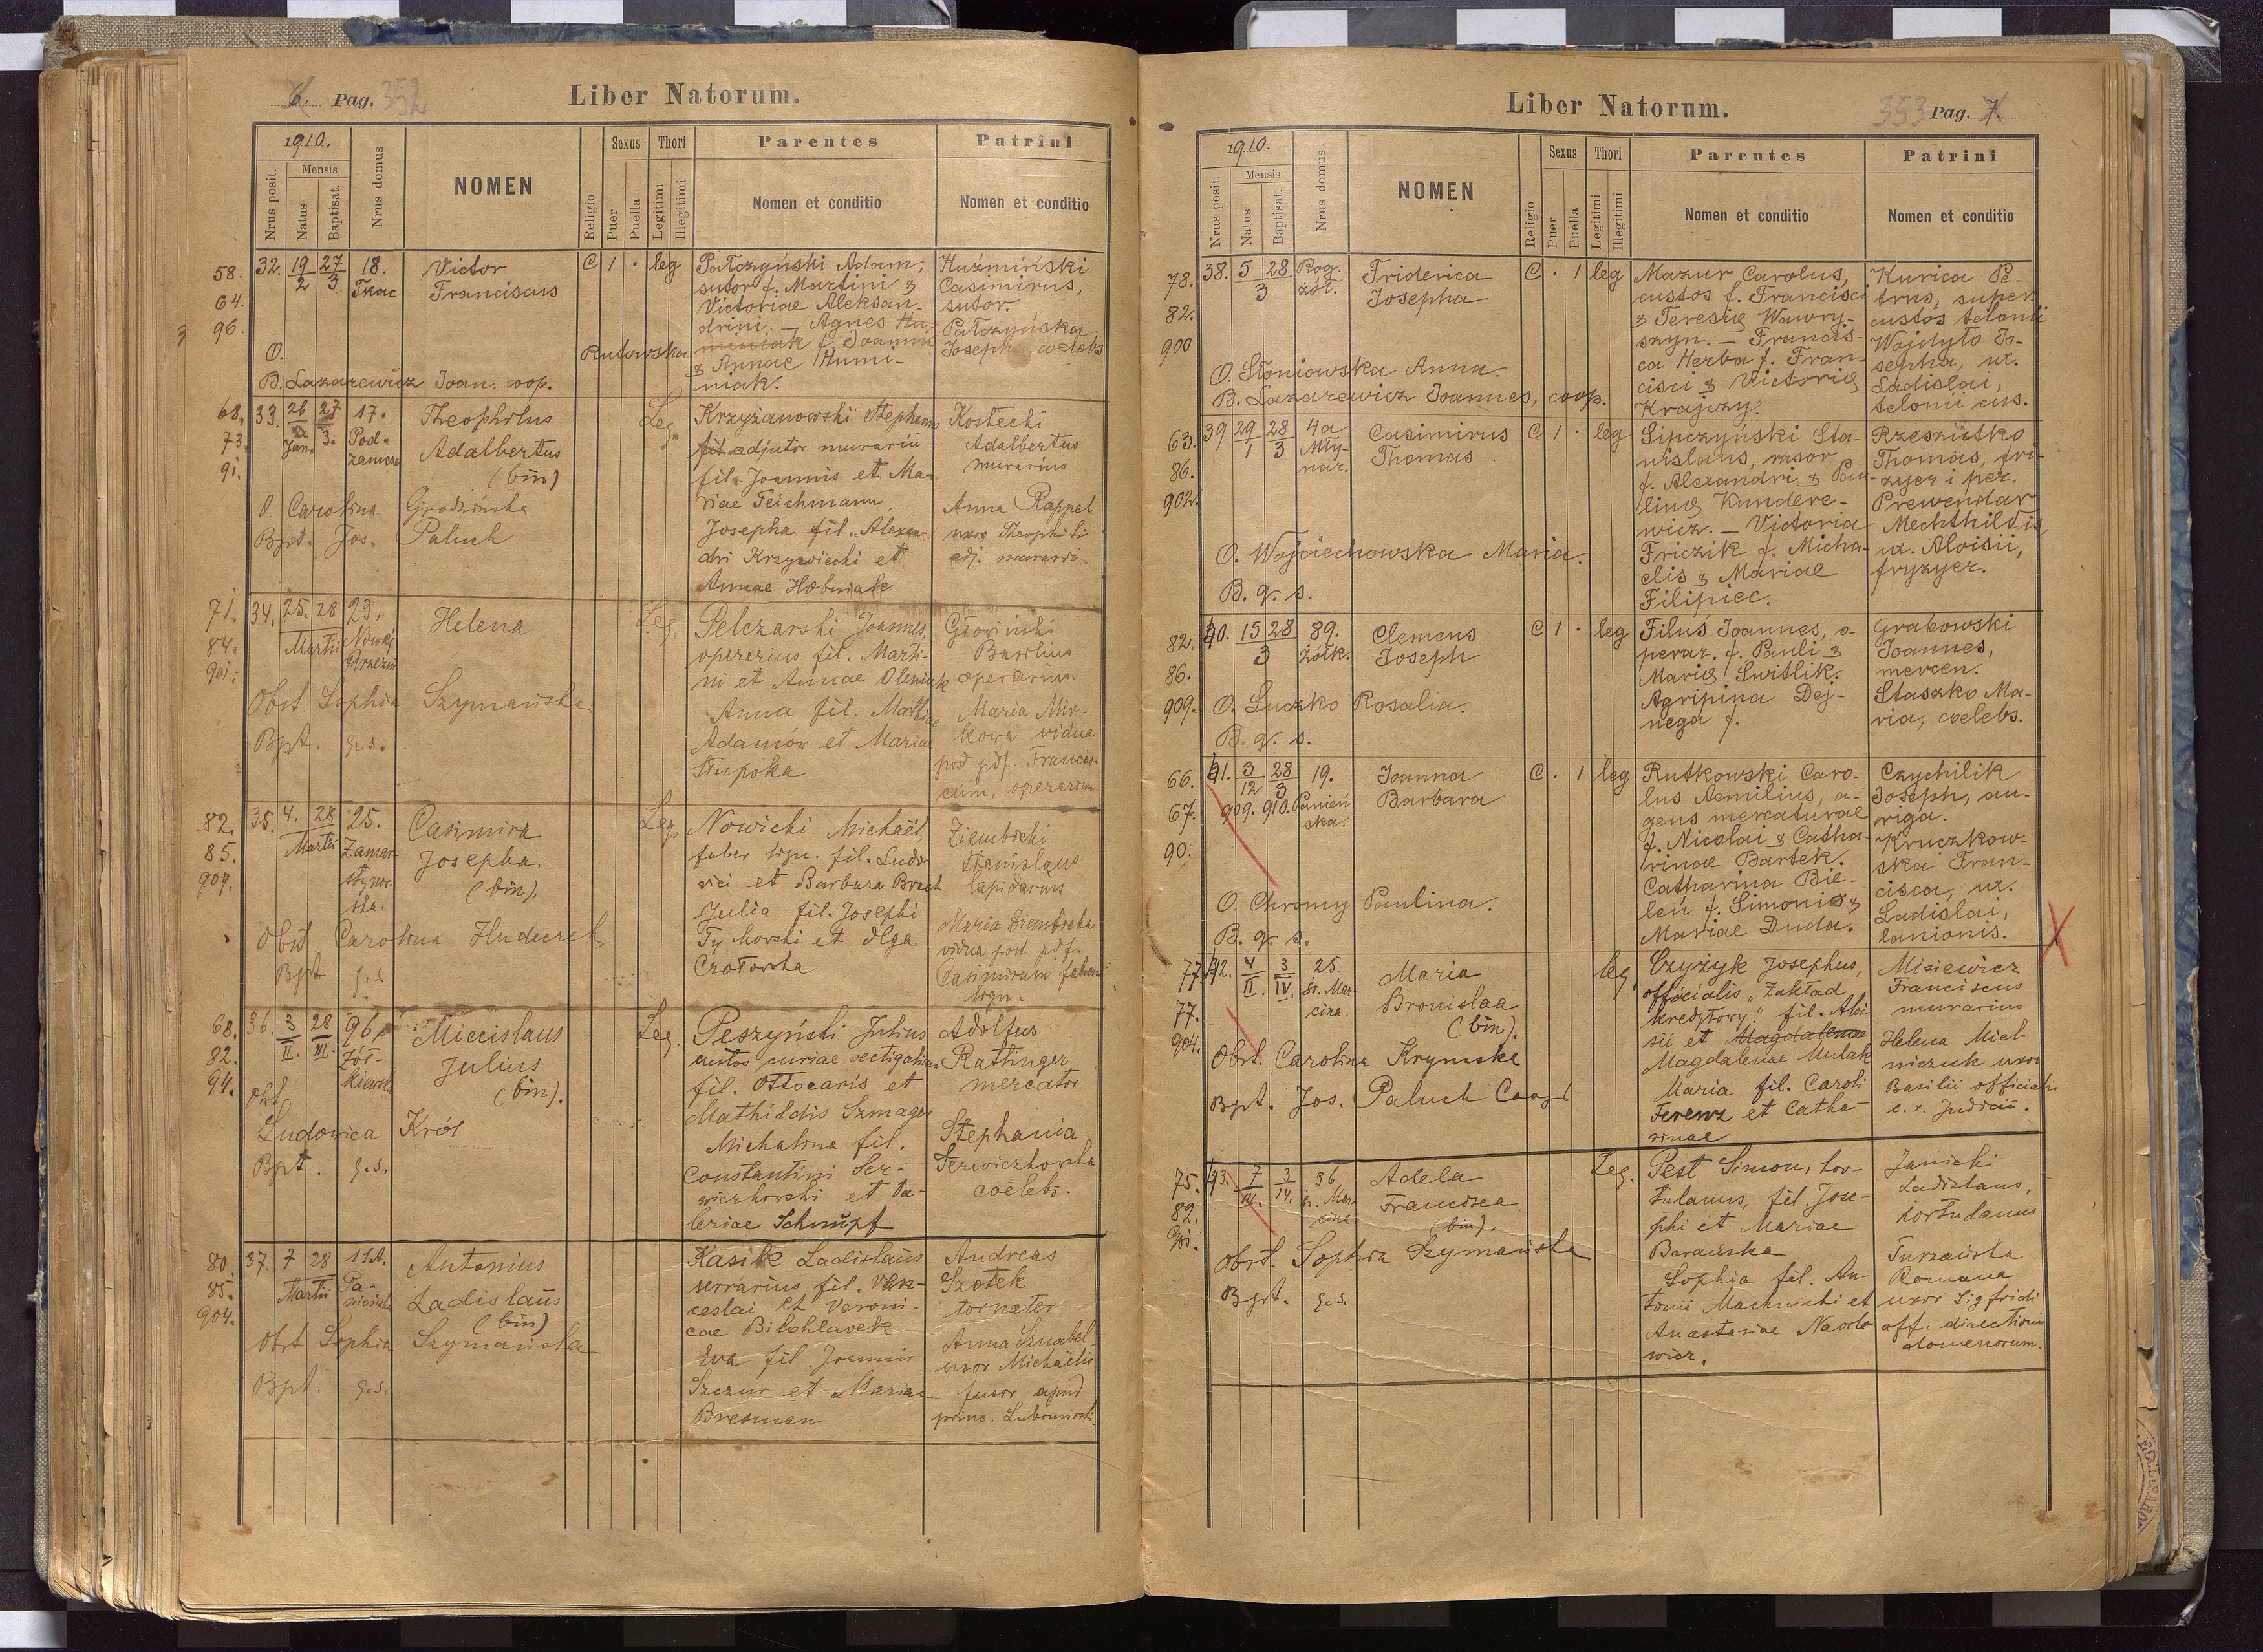 6. Pag. 352
Liber Natorum.
1910.
Nrus posit.
Mensis
Natus
Baptisat.
Nrus domus
NOMEN
Religio
Sexus
Puer
Puella
Thori
Legitimi
Illegitimi
Parentes
Nomen et conditio
Patrini
Nomen et conditio
58.
64.
96.
32. 19/2 27/3 18.
Tkac
Victor
Franciscus
C 1 · leg
Pałczyński Adam,
sutor f. Martini &
Victoriae Aleksan-
drini. — Agnes Hu-
miniak f. Joannis
& Annae Humi-
niak.
Rutowska
Kuźmiński
Casimirus,
sutor.
Pałczyńska
Josepha coelebs
O.
B. Lazarewicz Joan. coop.
68.
73.
91.
33. 26 27 17.
Jan. 3. Pod-
zamcze
Theophilus
Adalbertus
(bin)
Leg.
Krzyżanowski Stephanus
fil. adjutor murarii
fil. Joannis et Ma-
riae Teichmann
Josepha fil. Alexan-
dri Krzywiecki et
Annae
Kostecki
Adalbertus
murarius
Anna Rappel
uxor Theophili
adj. murarii.
O. Carolina Grodzińska
Bpt. Jos. Paluch
71.
84.
901.
34. 25. 28 23.
Martii Nowej
Rzezni
Helena
Leg.
Pelczarski Joannes,
operarius fil. Marti-
ni et Annae Oleniuk
Anna fil. Mathiae
Adamów et Maria
Słupska
Głowiński
Basilius
operarius
Maria Mir-
kowa vidua
post pdf. Francis-
cum, operarium
Obst. Sophia Szymańska
Bpt. q.s.
82.
85.
909.
35. 4. 28 25.
Martii Zamar-
stynow-
ska.
Casimira
Josepha
(bin).
Leg.
Nowicki Michaël,
faber lign. fil. Ludo-
vici et Barbara
Julia fil. Josephi
Tychowski et Olga
Czołowska
Ziembicki
Stanislaus
lapidarius
Maria Ziembicka
vidua post pdf.
Casimirum fabrum
lign.
Obst Carolina Hudeczek
Bpt q.s.
68.
82.
94.
36. 3/II. 28/III. 96.
Żół-
kiewska
Miecislaus
Julius
(bin).
Leg.
Peszyński Julius
custos curiae vectigalium
fil. Ottocaris et
Mathildis Szmager
Michalina fil.
Constantini Ser-
wiczkowski et Va-
leriae Schnupf
Adolfus
Rattinger
mercator
Stephania
Serwiczkowska
coelebs.
Obst
Ludovica Król
Bpt. q.s.
80.
85.
904.
37. 7 28 11A.
Martii Pa-
nieńska
Antonius
Ladislaus
(bin)
Kasik Ladislaus
serrarius fil. Ven-
ceslai et Veroni-
cae Bilohlavek
Eva fil. Joannis
Szczur et Mariae
Bresman
Andreas
Szotek
tornator
Anna Sznabel
uxor Michaëlis
fusor apud
princ. Lubomirski.
Obst Sophia Szymańska
Bpt. q.s.
Liber Natorum.
353 Pag. 7.
1910.
Nrus posit.
Mensis
Natus
Baptisat.
Nrus domus
NOMEN
Religio
Sexus
Puer
Puella
Thori
Legitimi
Illegitimi
Parentes
Nomen et conditio
Patrini
Nomen et conditio
78.
82.
900
38. 5 28 Rog.
3 żół.
Friderica
Josepha
C · 1 leg
Mazur Carolus,
custos f. Francisci
& Teresię Wawry-
szyn. — Francis-
ca Herba f. Fran-
cisci & Victorię
Krajczy.
Kurica Pe-
trus, super.
custos telonii
Wojdyło Jo-
sepha, ux.
Ladislai,
telonii cus.
O. Słoniowska Anna.
B. Lazarewicz Joannes, coop.
63.
86.
902.
39 29 28 4a
1 3 Mły-
nar.
Casimirus
Thomas
C 1 · leg
Lipczyński Sta-
nislaus, rasor
f. Alexandri & Pau-
linę Kundere-
wicz. — Victoria
Friczik f. Micha-
elis & Mariae
Filipiec.
Rzeszutko
Thomas, fri-
zyer i per.
Prewendar
Mechthildis
ux. Aloisii,
fryzyer.
O. Wojciechowska Maria.
B. q. s.
82.
86.
909.
40. 15 28 89.
3 żółk.
Clemens
Joseph
C 1 · leg
Filus Joannes, o-
perar. f. Pauli &
Marię Switlik.
Agripina Dej-
nega f.
Grabowski
Joannes,
mercen.
Staszko Ma-
ria, coelebs.
O. Łuczko Rosalia.
B. q. s.
66.
67.
90.
41. 3 28 19.
12 3
909. 910. Panień
ska.
Joanna
Barbara
C · 1 leg
Rutkowski Caro-
lus Aemilius, a-
gens mercaturae
f. Nicolai & Catha-
rinae Bartek.
Catharina Bie-
leń f. Simonis &
Mariae Duda.
Czychilik
Joseph, au-
riga.
Kruczkow-
ska Fran-
cisca, ux.
Ladislai,
lanionis.
X
O. Chromy Paulina.
B. q. s.
77.
77.
904.
42. 4/II. 3/IV. 25.
św. Mar-
cina.
Maria
Bronislaa
(bin).
leg.
Czyżyk Josephus,
officialis „Zakład
kredytowy." fil. Aloi-
sii et Magdalenae
Magdalenae Mulak
Maria fil. Caroli
Ferenz et Catha-
rinae
Misiewicz
Franciscus
murarius
Helena Miel-
niczuk uxor
Basilii officialis
c. r. Judicii.
Obst. Carolina Krymska
Bpt. Jos. Paluch Coop
75.
82.
901.
43. 7/III. 3/IV. 36
św. Mar-
cina
Adela
Francisca
(bin).
Leg.
Pest Simon, hor-
tulanus, fil. Jose-
phi et Mariae
Barańska
Sophia fil. An-
tonii Machnicki et
Anastasiae Nawro
wicz.
Janicki
Ladislaus,
hortulanus
Turzańska
Romana
uxor Sigfridi
off. directionis
domenorum.
Obst. Sophia Szymańska
Bpt. q.s.